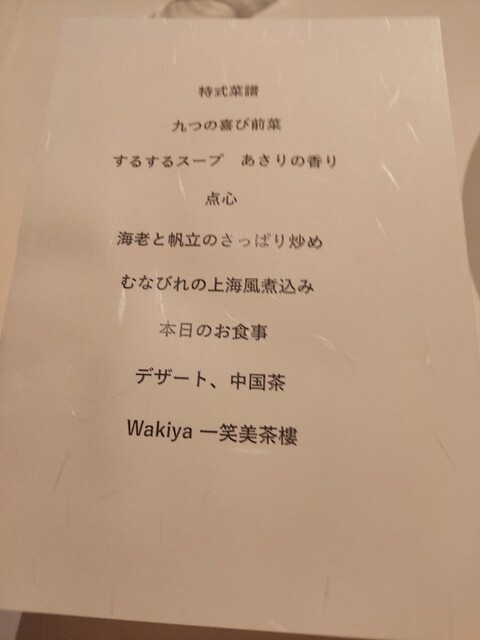 特式菜譜
九つの喜び前菜
するするスープ　あさりの香り
点心
海老と帆立のさっぱり炒め
むなびれの上海風煮込み
本日のお食事
デザート、中国茶
Wakiya 一笑美茶樓